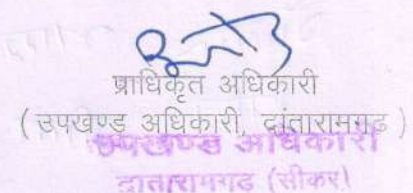 प्राधिकृत अधिकारी
( उपखण्ड अधिकारी, दांतारामगढ़ )
उपखण्ड अधिकारी
दातारामगढ (सीकर)